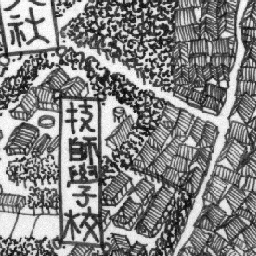 社
技師學校